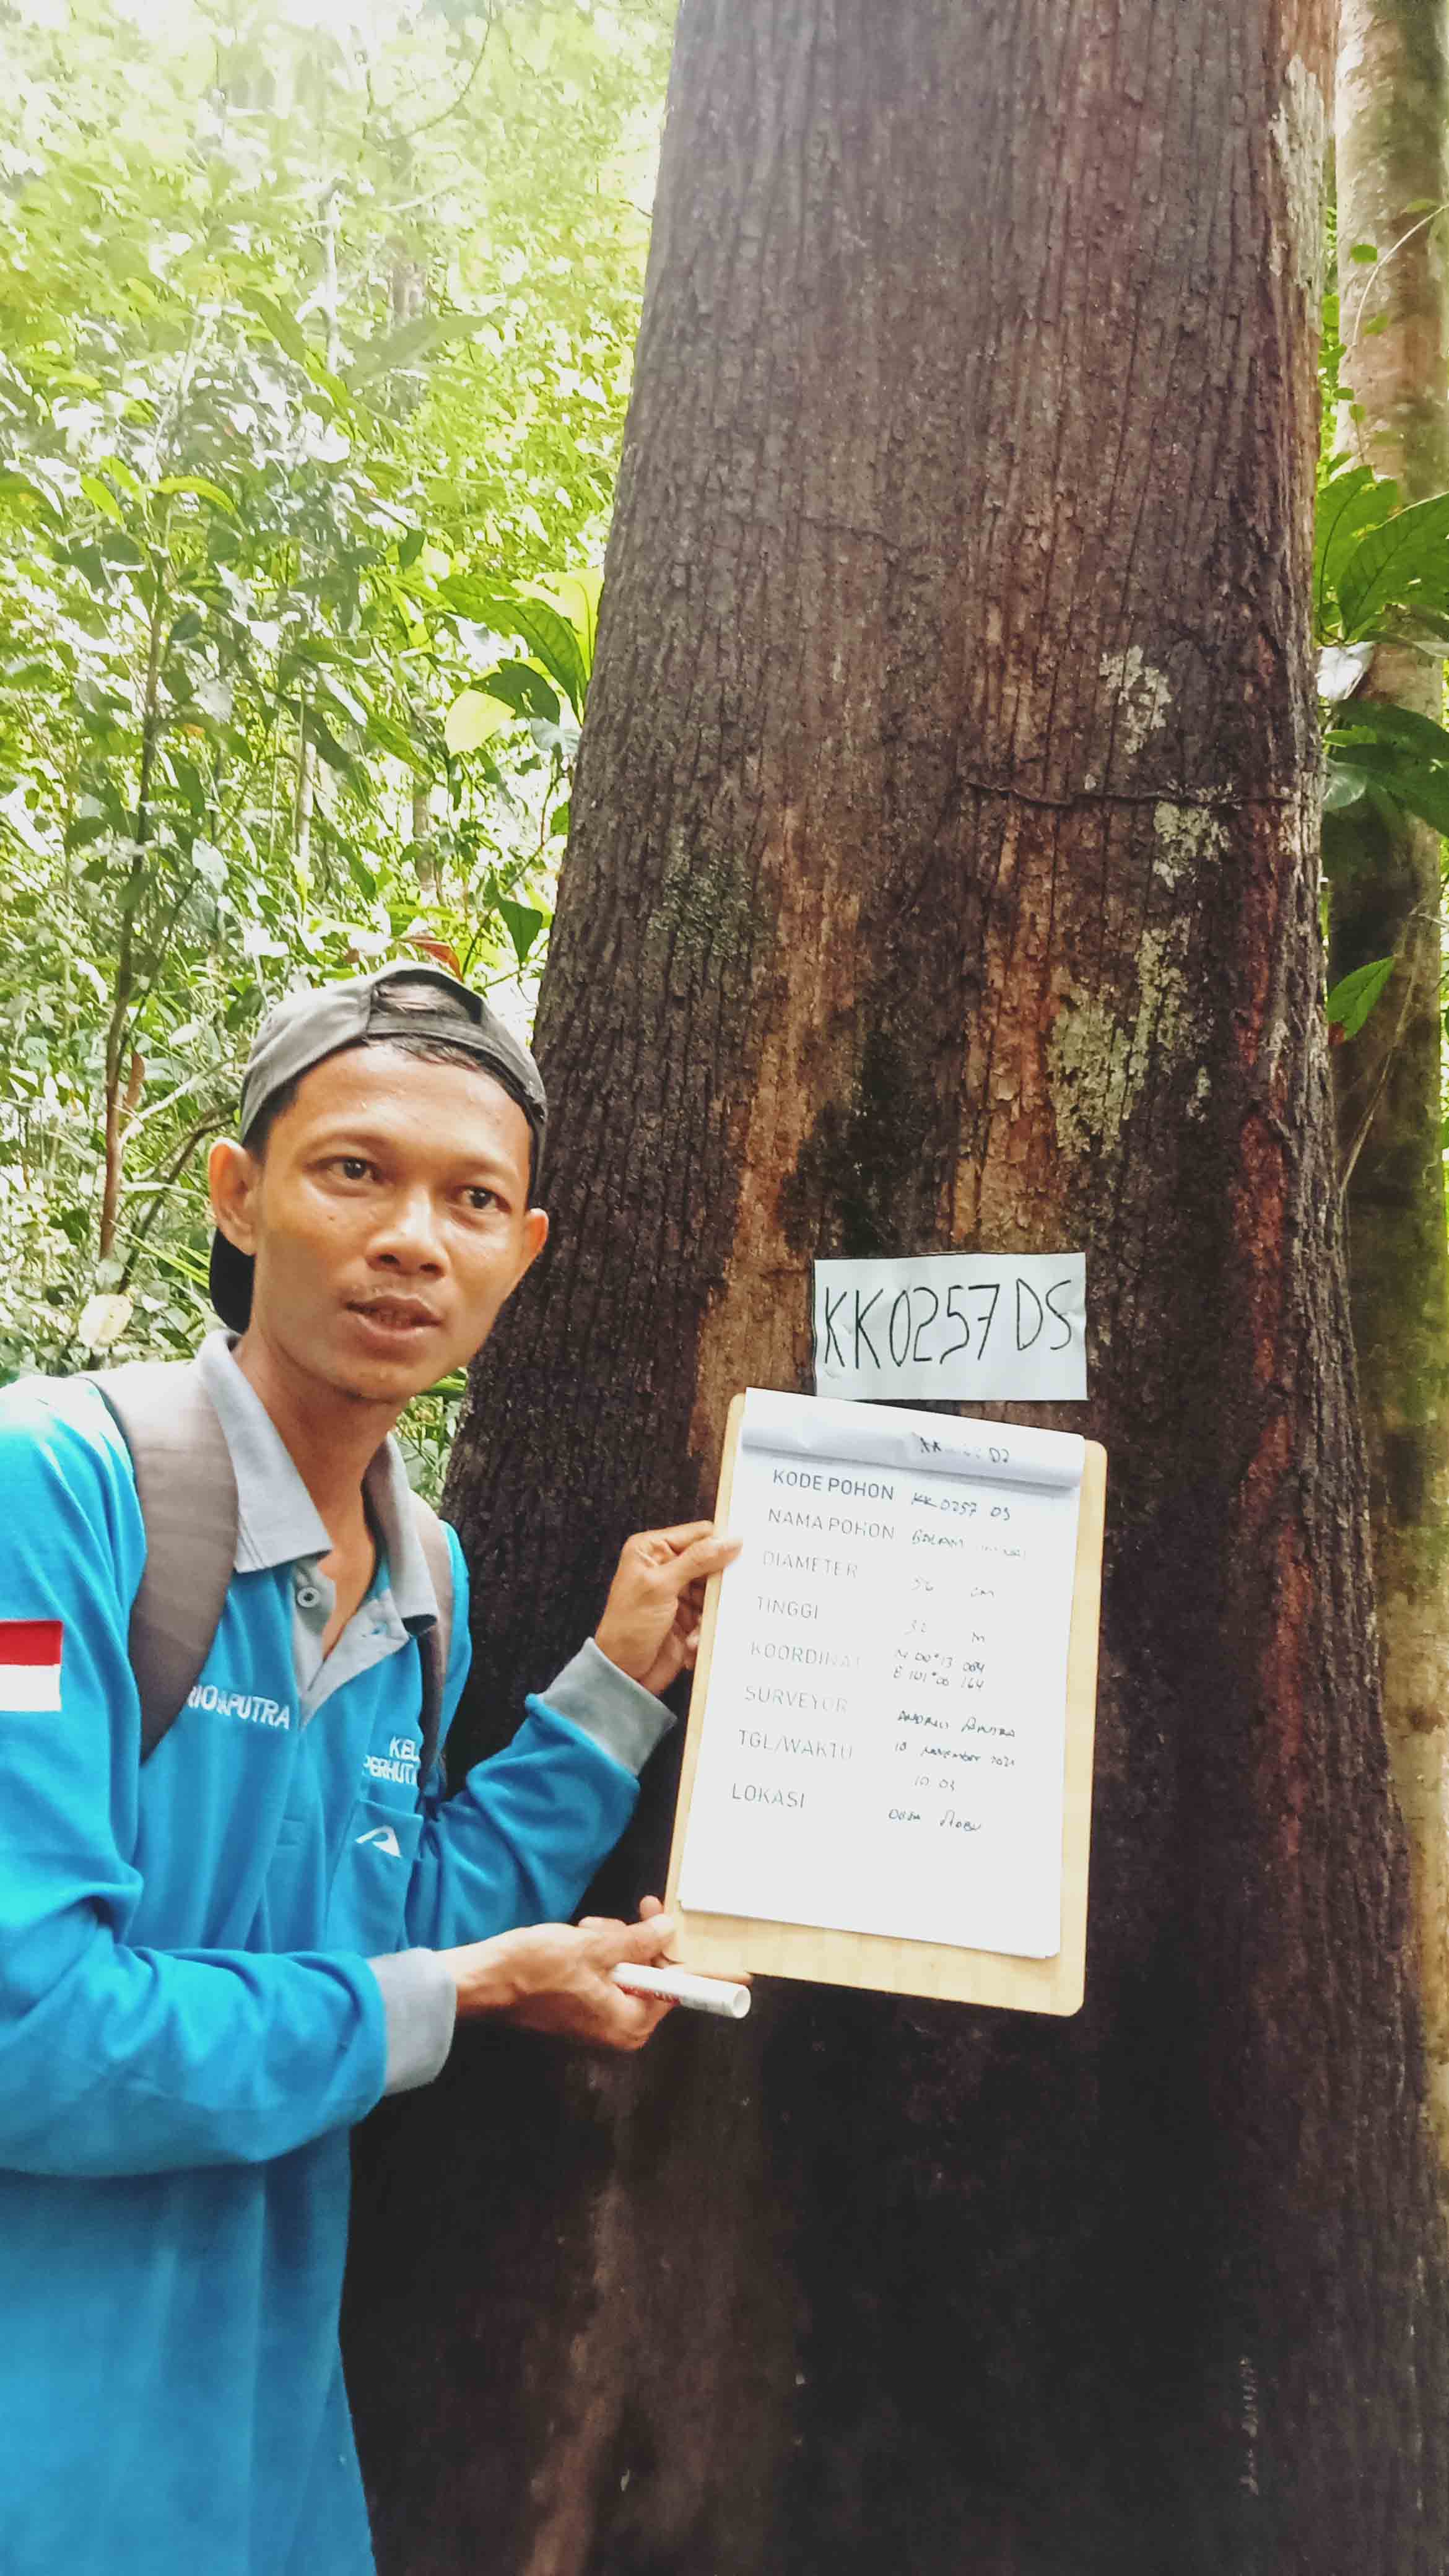 KK0257 DS
KODE POHON KK0257 DS
NAMA POHON BALAM
DIAMETER 56 cm
TINGGI 32 m
KOORDINAT N 00°13 084
E 101°00 164
SURVEYOR
TGL/WAKTU 18 November 2021
10 03
LOKASI
RIO SAPUTRA
KEL
PERHUT